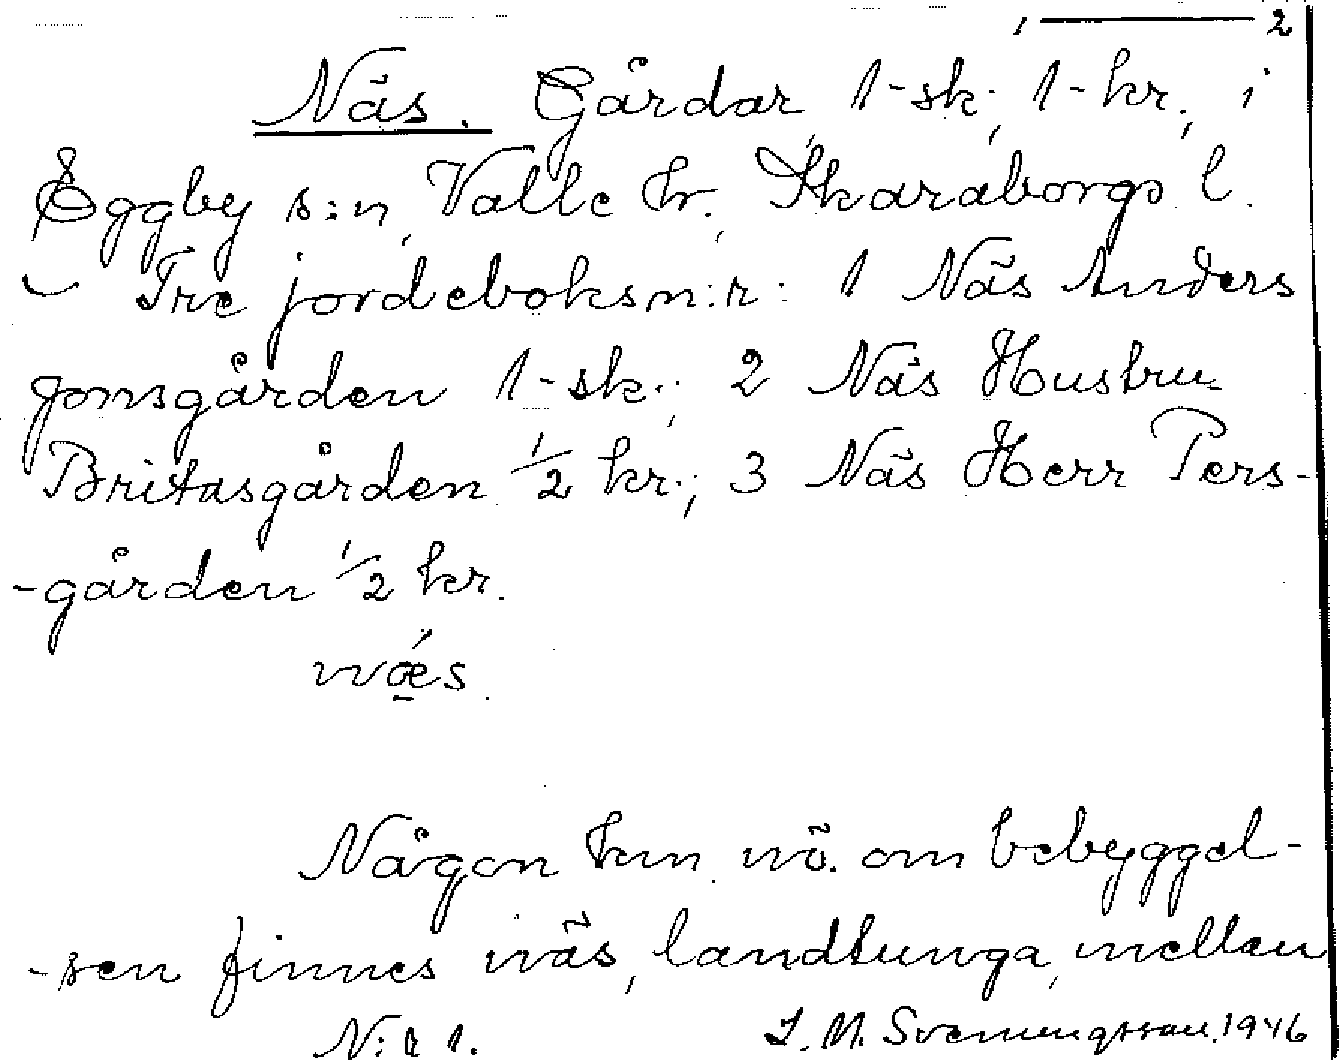 2
Näs. Gårdar 1-sk., 1-kr., i
Eggby s:n, Valle hr., Skaraborgs l.
Tre jordeboksn:r: 1 Näs Anders
Jonsgården 1-sk.; 2 Näs Hustru
Britasgården 1/2 kr.; 3 Näs Herr Pers-
-gården 1/2 kr.
nǽ̱s.
Någon km nö. om bebyggel-
-sen finnes näs, landtunga, mellan
N:r 1. J. M. Svenungsson. 1946